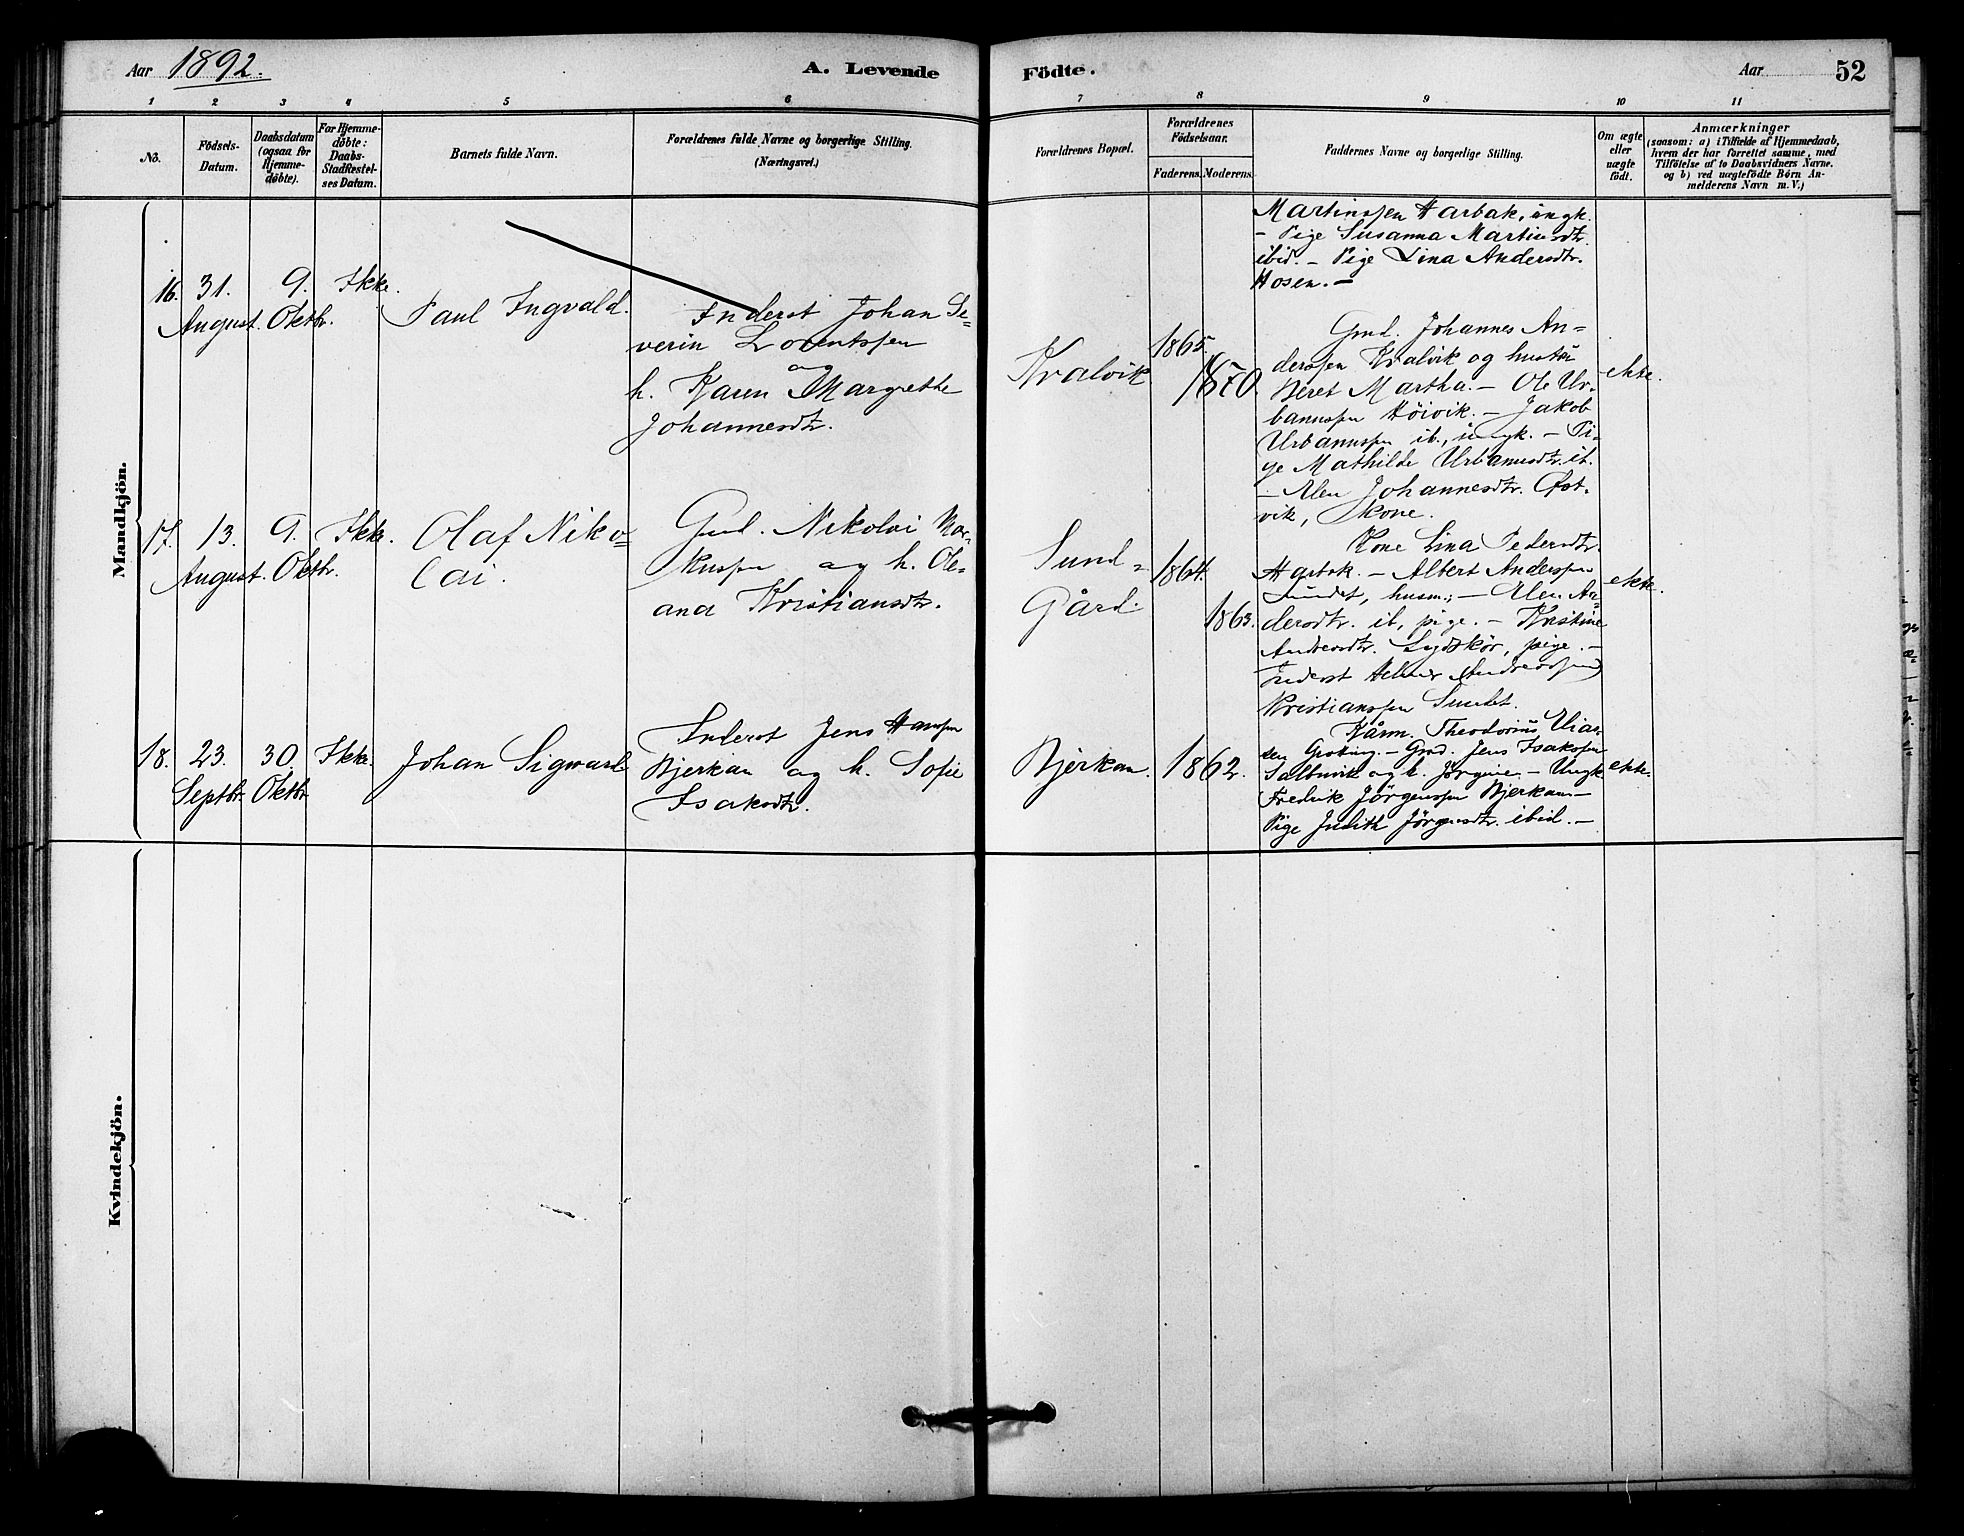 Aar 1892.
A. Levende
Födte.
Aar
52
1 2 3 4 5 6 7 8 9 10 11
No.
Födsels-
Datum.
Daabsdatum
(ogsaa for
Hjemme-
döbte).
For Hjemme-
döbte:
Daabs-
Stadfæstel-
ses Datum.
Barnets fulde Navn.
Forældrenes fulde Navne og borgerlige Stilling.
(Næringsvei.)
Forældrenes Bopæl.
Forældrenes
Födselsaar.
Faderens. Moderens.
Faddernes Navne og borgerlige Stilling.
Om ægte
eller
uægte
födt.
Anmærkninger
(saasom: a) i Tilfælde af Hjemmedaab,
hvem der har forrettet samme, med
Tilföielse af to Daabsvidners Navne.
og b) ved uægtefödte Börn An-
melderens Navn m. V.)
Mandkjön.
Martinssen Harbak, ungk.
- Pige Susanna Martinsdtr.
ibid. - Pige Lina Andersdtr.
Hosen. -
16.
31.
August.
9.
Oktbr.
Ikke.
Paul Ingvald.
Inderst Johan Se-
verin Lorentssen
og
h. Karen Margrethe
Johannesdtr.
Kralvik
1865.
1870.
Gmd. Johannes An-
derssen Kralvik og hustru
Beret Martha. - Ole Ur-
banussen Höivik. - Jakob
Urbanussen ib., ungk. - Pi-
ge Mathilde Urbanusdtr. ib.
- Elen Johannesdtr.
vik, Kone.
ekte.
17.
13.
August.
9.
Oktbr.
Ikke.
Olaf Niko-
lai.
Gmd. Nikolai Mar-
kussen og h. Ole-
ana Kristiansdtr.
Sund-
Gård.
1864.
1863.
Kone Lina Pedersdtr.
Harbak. - Albert Anderssen
Sundet, husm.; - Elen An-
dersdtr. ib, pige. - Kristine
Andreasdtr. Sydskör, pige. -
Inderst Helmer (Andreassen)
Kristianssen Sundet.
ekte.
18.
23.
Septbr.
30.
Oktbr.
Ikke.
Johan Sigvard
Inderst Jens Hanssen
Bjerkan og h. Sofie
Isaksdtr.
Bjerkan.
1862.
Kårm. Theodorius Elias-
sen - Gmd. Jens Isaksen
Saltbuvik og h. Jörgine. - Ungk.
Fredrik Jörgenssen Bjerkan. -
Pige Judith Jörgensdtr. ibid. -
ekte.
Kvindekjön.